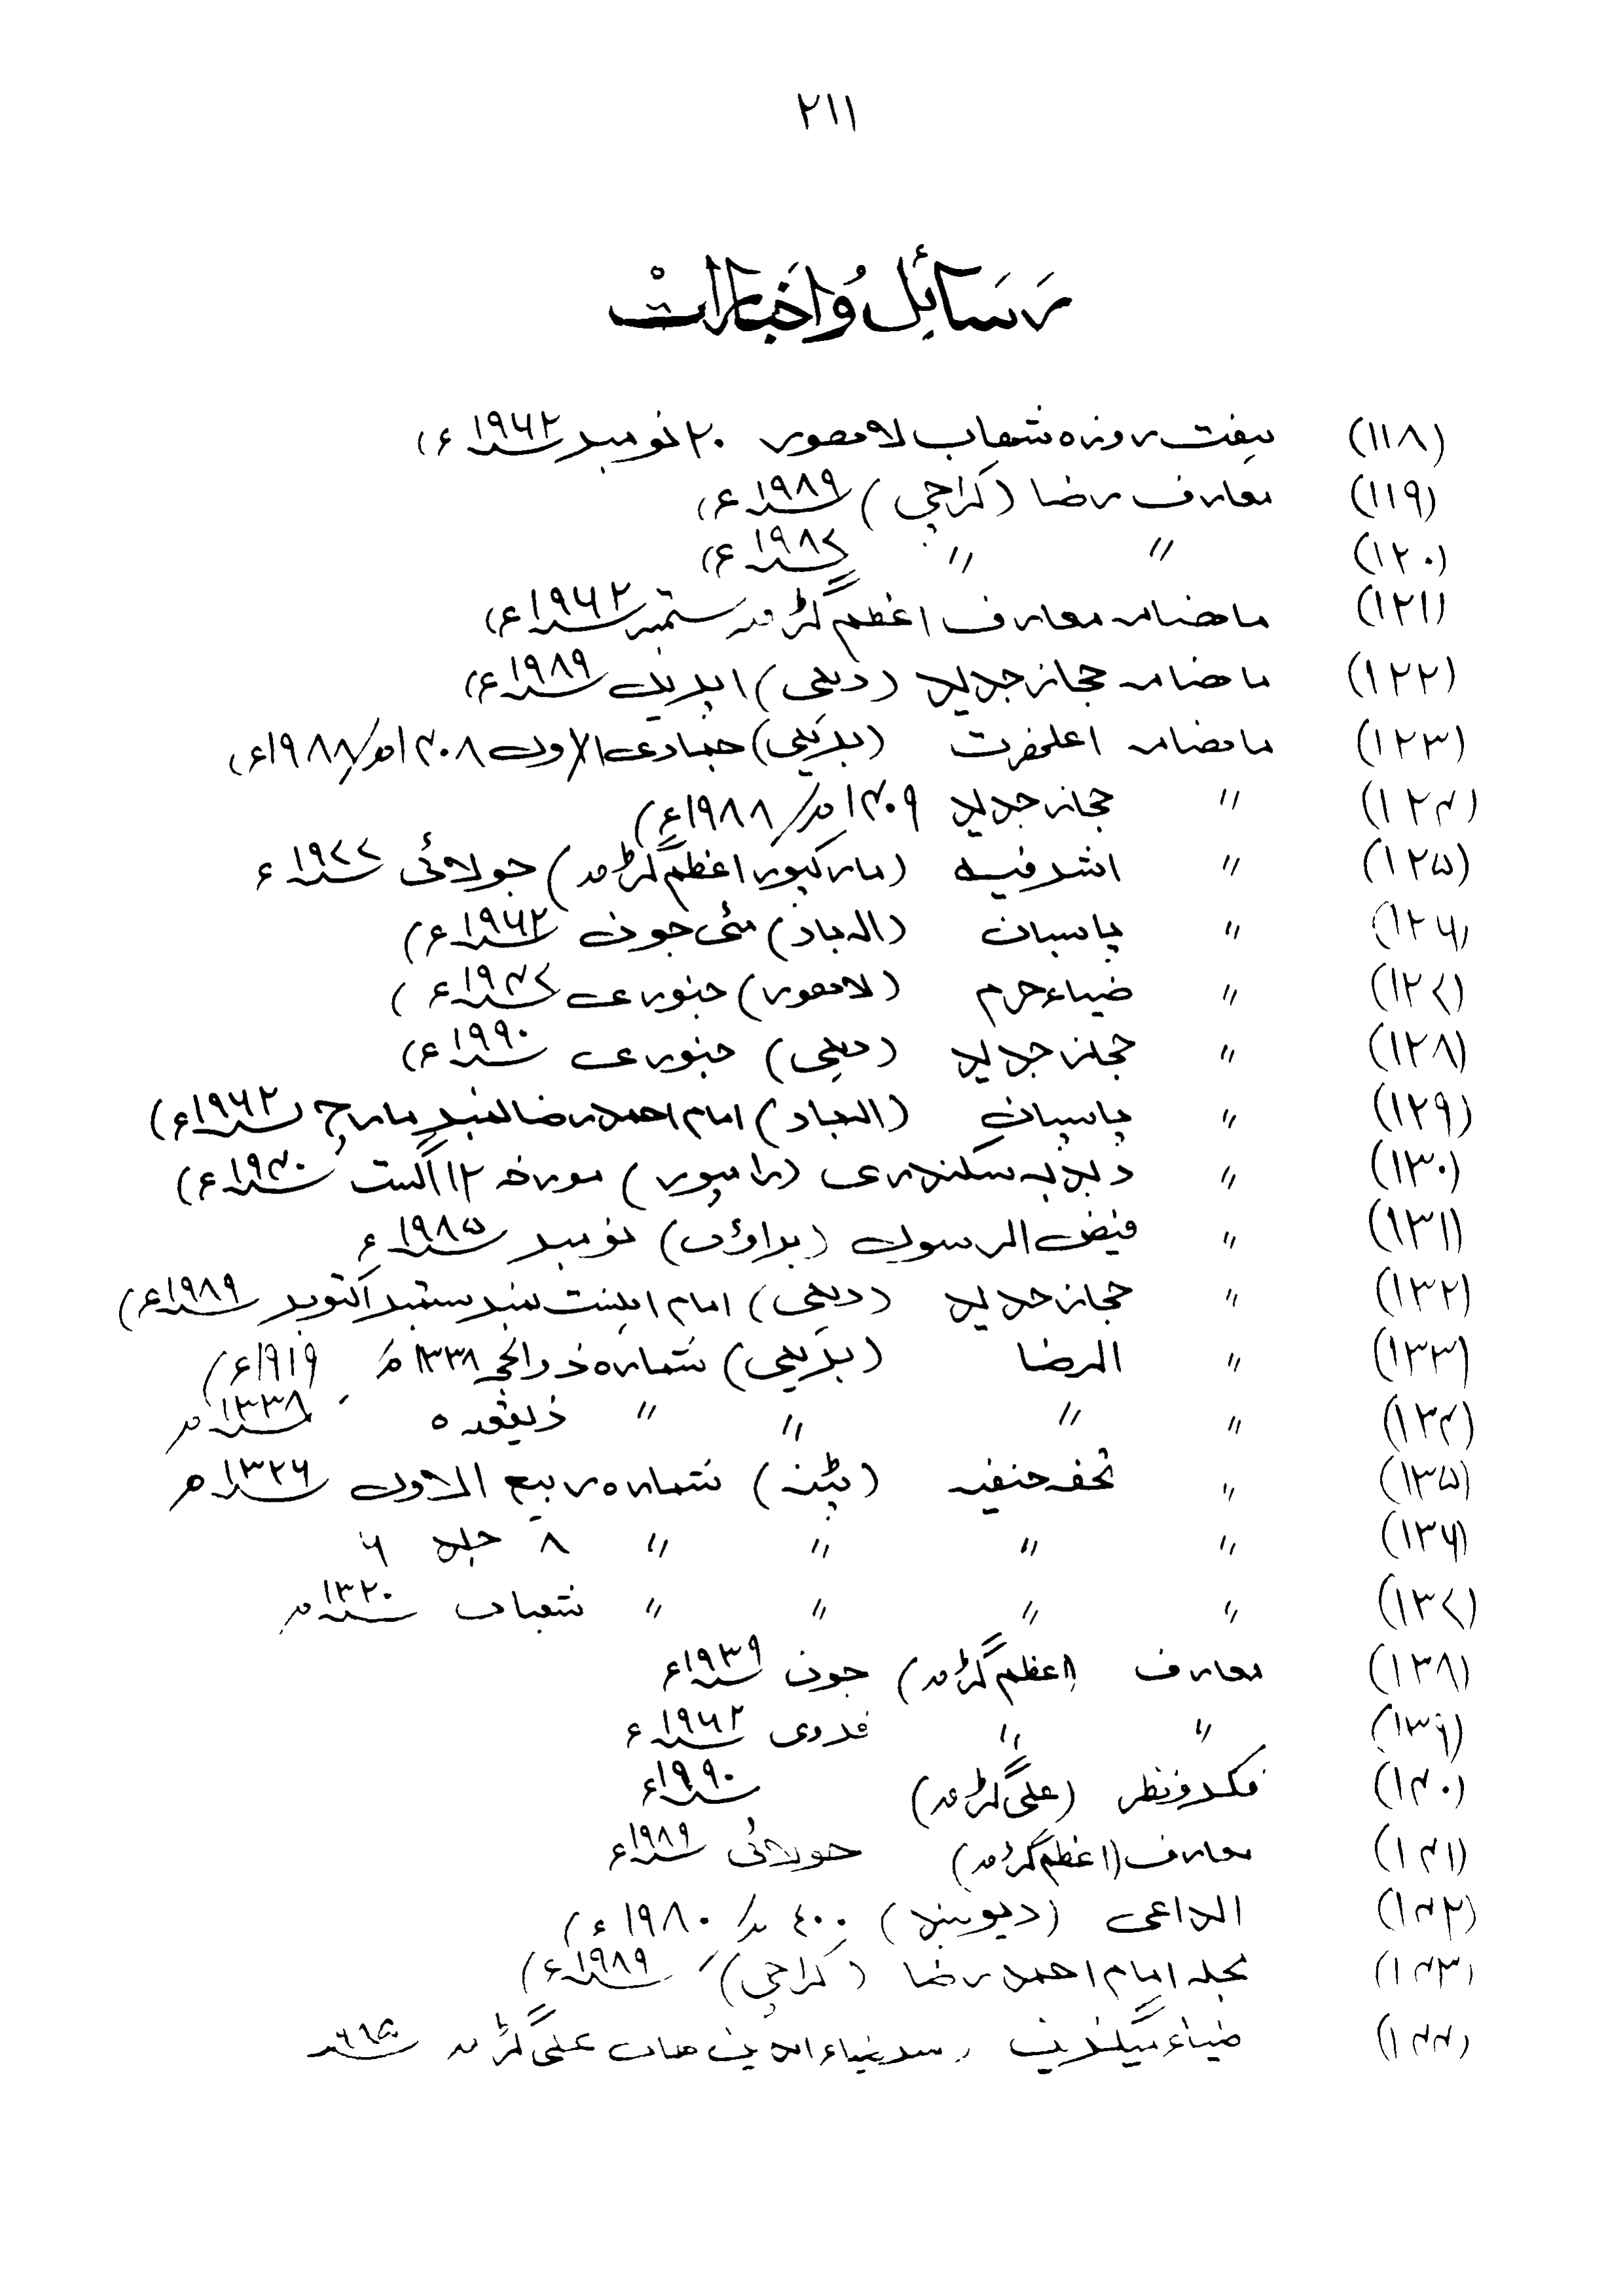 ۲۱۱
رَسَائِل وُاَخبَارَاتْ
(۱۱۸) ہفت روزہ شھاب لاھور ۲۰ نومبر ۱۹۶۲ء)
(۱۱۹) معارف رضا (کراچی) ۱۹۸۹ء)
(۱۲۰) " " ۱۹۸۷ء)
(۱۲۱) ماھنامہ معارف اعظم گڑھ ستمبر ۱۹۶۲ء)
(۱۲۲) ماھنامہ حجاز جدید (دہلی) اپریل ۱۹۸۹ء)
(۱۲۳) ماھنامہ اعلحضرت (بریلی) جمادی الاول ۱۴۰۸ھ/۱۹۸۸ء)
(۱۲۴) " حجاز جدید ۱۴۰۹ھ/۱۹۸۸ء)
(۱۲۵) " اشرفیہ (مبارکپور اعظم گڑھ) جولائی ۱۹۷۷ء
(۱۲۶) " پاسبان (الہ باد) مئی جون ۱۹۶۲ء)
(۱۲۷) " ضیاء حرم (لاھور) جنوری ۱۹۴۷ء)
(۱۲۸) " حجاز جدید (دہلی) جنوری ۱۹۹۰ء)
(۱۲۹) " پاسبان (الہباد) امام احمد رضا نمبر مارچ ۱۹۶۲ء)
(۱۳۰) " دبدبہ سکندری (رامپور) مورخہ ۱۲ اگست ۱۹۴۰ء)
(۱۳۱) " فیض الرسول (براؤں) نومبر ۱۹۸۵ء
(۱۳۲) " حجاز جدید (دہلی) امام اہلسنت نمبر ستمبر اکتوبر ۱۹۸۹ء)
(۱۳۳) " الرضا (بریلی) شمارہ ذوالحجہ ۱۳۳۸ھ ۱۹۱۹ء)
(۱۳۴) " " " " ذیقعدہ ۱۳۳۸ھ
(۱۳۵) " تحفہ حنفیہ (پٹنہ) شمارہ ربیع الاول ۱۳۲۶ھ
(۱۳۶) " " " " ۸ جلد ۶
(۱۳۷) " " " " شعبان ۱۳۲۰ھ
(۱۳۸) معارف (اعظم گڑھ) جون ۱۹۳۹ء
(۱۳۹) " " فروری ۱۹۶۲ء
(۱۴۰) فکر و نظر (علی گڑھ) ۱۹۹۰ء
(۱۴۱) معارف (اعظم گڑھ) جولائی ۱۹۸۹ء
(۱۴۲) الداعی (دیوبند) ۴۰۰ھ/۱۹۸۰ء)
(۱۴۳) مجلہ امام احمد رضا (کراچی) ۱۹۸۹ء)
(۱۴۴) ضیاء میگزین سر ضیاء الدین ھال علی گڑھ